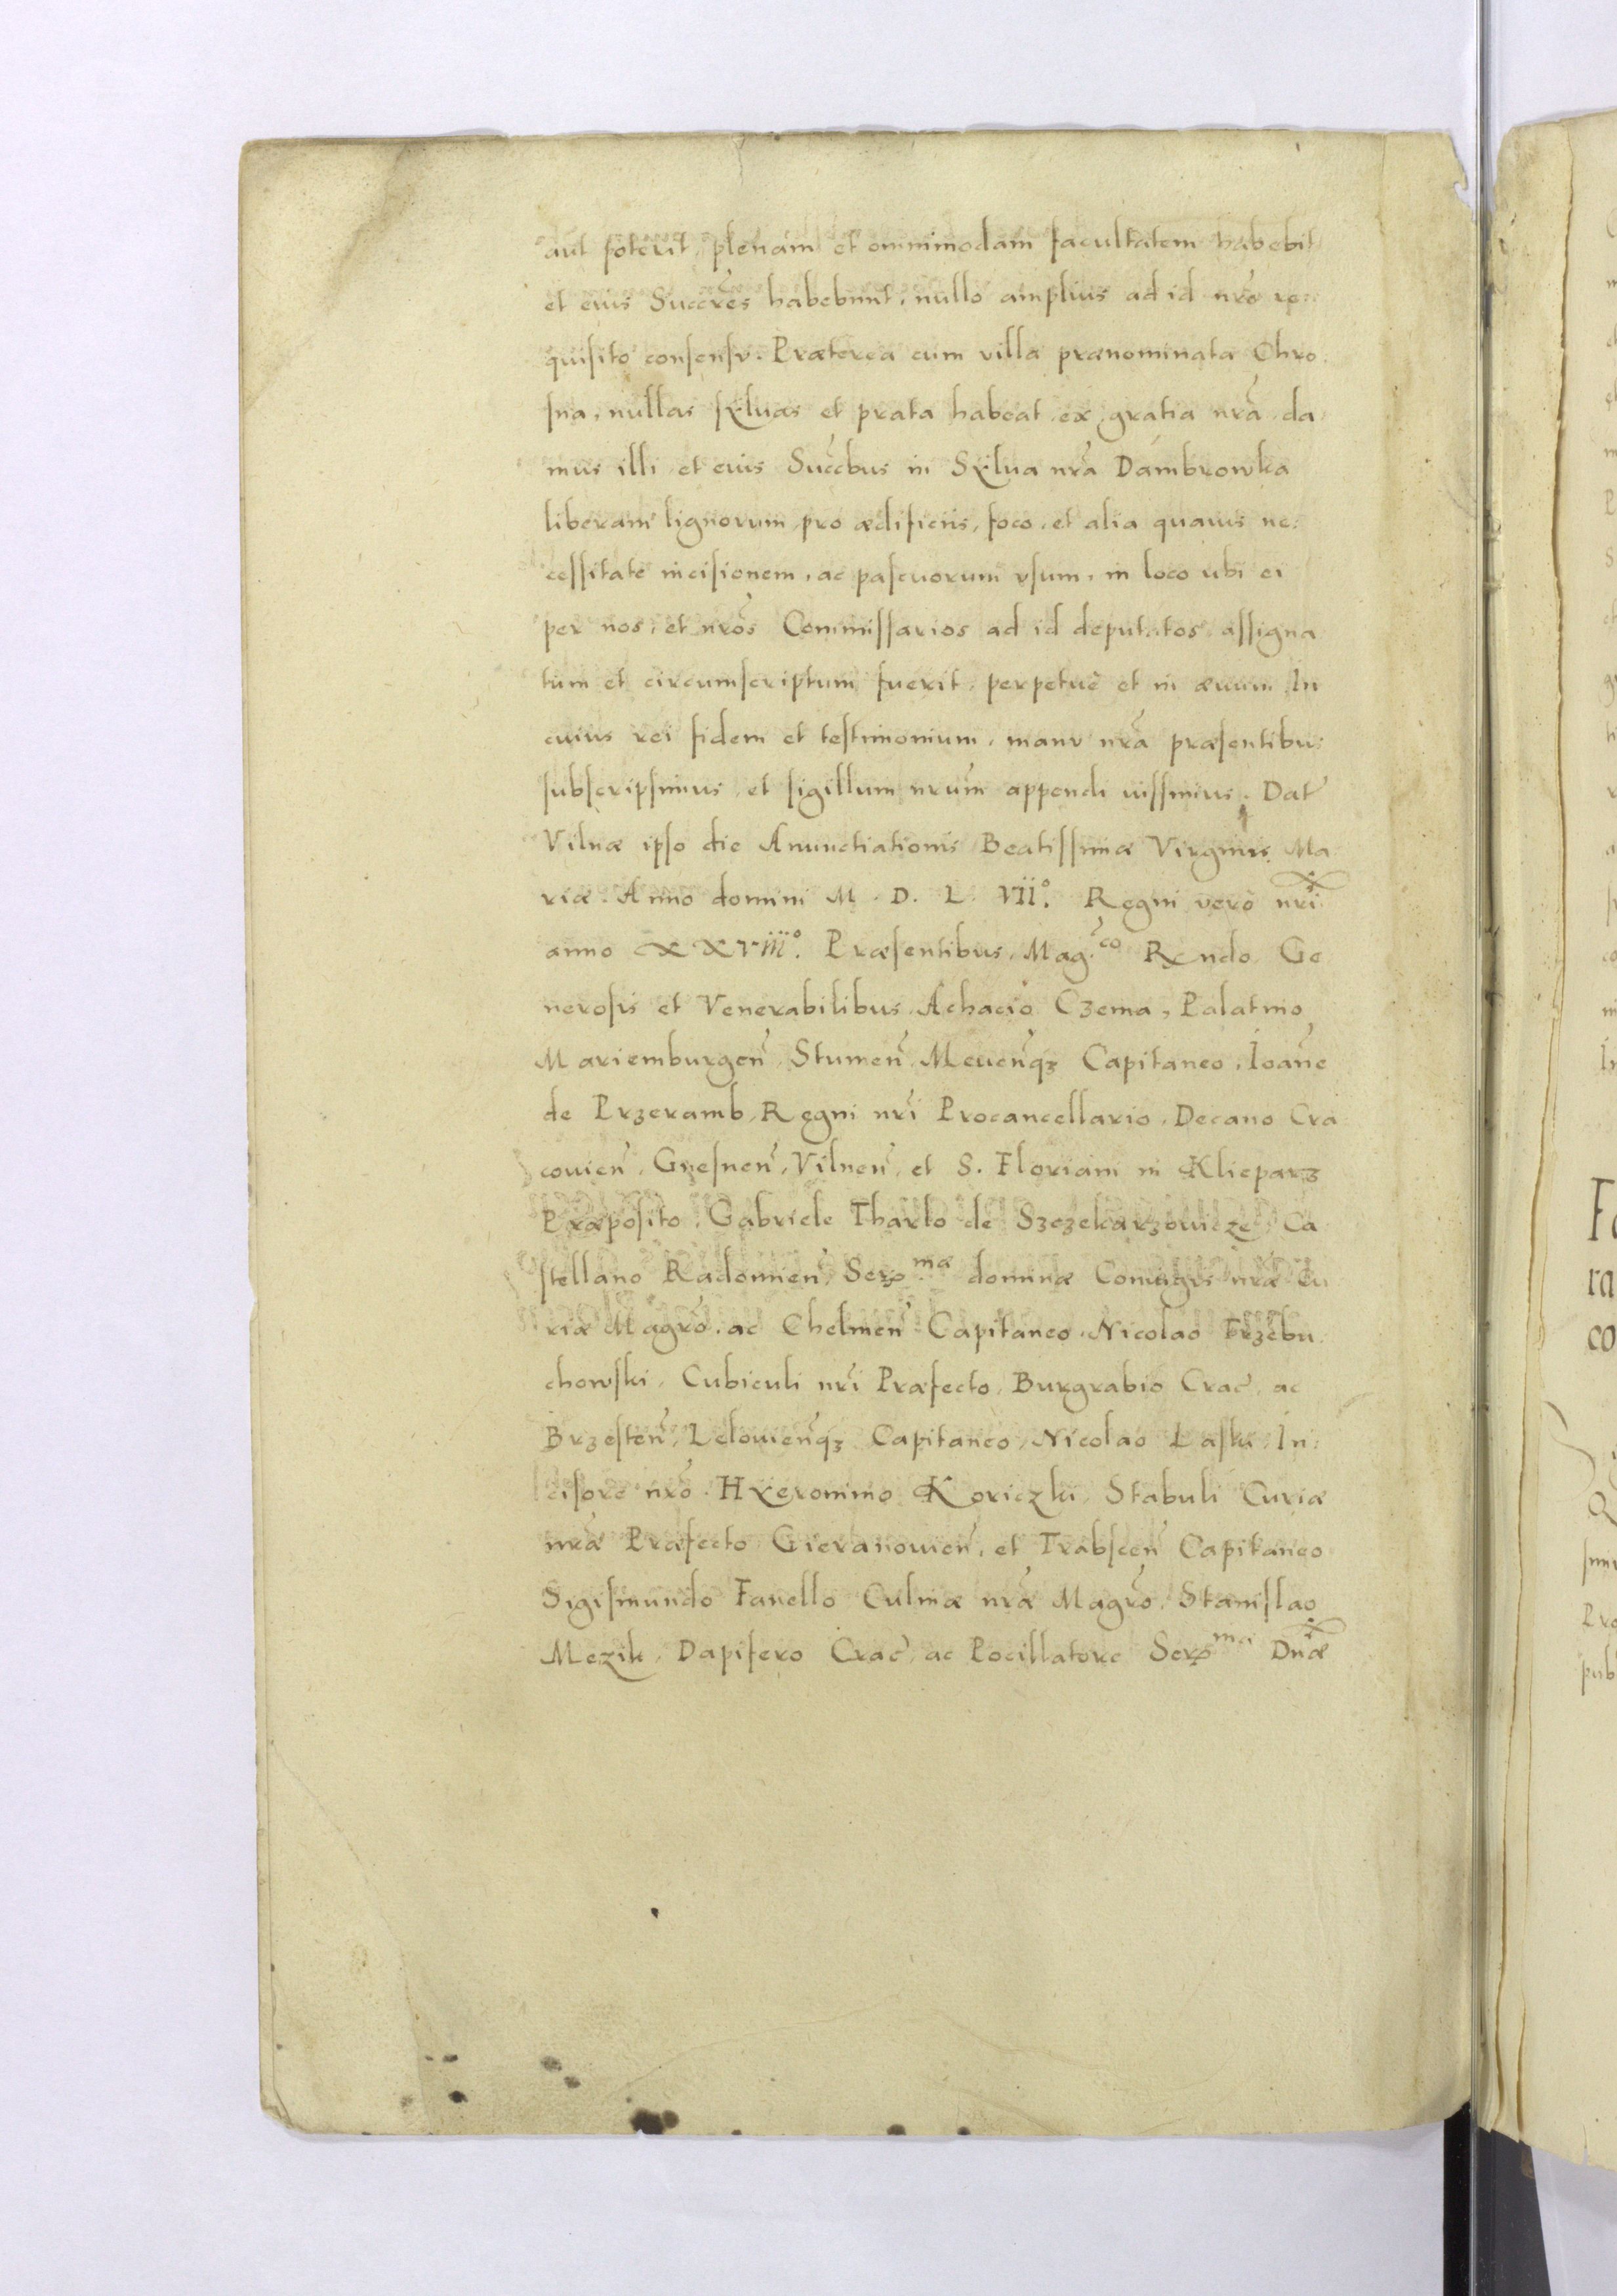 aut poterit, plenam et omnimodam facultatem habebit
et eius Succres habebunt, nullo amplius ad id nro re:
quisito consensv. Præterea cum villa prænominata Chro
sna, nullas sylvas et prata habeat, ex gratia nra da
mus illi et eius Succbus in Sylua nra Dambrowka
liberam lignorum pro ædificiis, foco, et alia quauis ne:
cessitate incisionem, ac pascuorum vsum, in loco ubi ei
per nos, et nros Commissarios ad id deputatos assigna
tum et circumscriptum fuerit, perpetuè et in æuum. In
cuius rei fidem et testimonium, manv nra præsentibus
subscripsimus, et sigillum nrum appendi iussimus. Dat
Vilnæ ipso die Anunctiationis Beatissimæ Virginis Ma
riæ. Anno domini M. D. L. VII°. Regni verò nri
anno XXVIII°. Præsentibus, Mag.co Rndo Ge
nerosis et Venerabilibus Achacio Czema, Palatino
Mariemburgen Stumen Meuenqz Capitaneo, Ioane
de Przeramb, Regni nri Procancellario, Decano Cra
couien, Gnesnen, Vilnen, et S. Floriani in Klieparz
Præposito, Gabriele Tharlo de Szczekarzouicze, Ca
stellano Radomien, Ser.mæ dominæ Coniugis nræ Cu
riæ Magro, ac Chelmen Capitaneo, Nicolao Trzebu
chowski, Cubiculi nri Præfecto, Burgrabio Crac, ac
Brzesten, Lelouienqz Capitaneo, Nicolao Laski, In:
cisore nro. Hyeronimo Koriczki, Stabuli Curiæ
nræ Præfecto Gieranouien, et Trabscen Capitaneo
Sigismundo Fanello Culinæ nræ Magro, Stanislao
Mezik, Dapifero Crac, ac Pocillatore Ser.mæ Dnæ